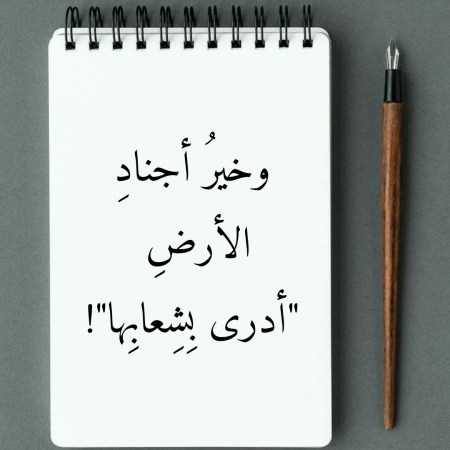 وخيرُ أجنادِ
الأرضِ
"أدرى بِشِعابِها"!